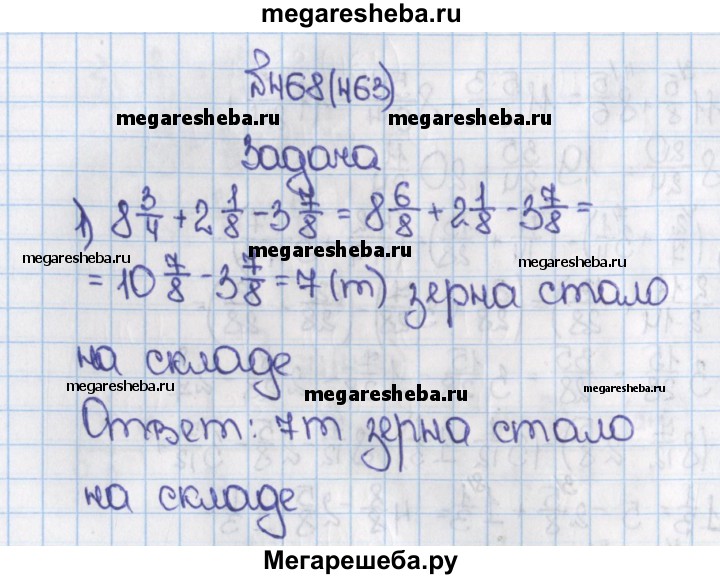 megaresheba.ru
№468(463)
megaresheba.ru megaresheba.ru
Задача
1) 8 3/4 + 2 1/8 - 3 7/8 = 8 6/8 + 2 1/8 - 3 7/8 =
megaresheba.ru megaresheba.ru megaresheba.ru
= 10 7/8 - 3 7/8 = 7 (т) зерна стало
на складе
megaresheba.ru megaresheba.ru megaresheba.ru
Ответ: 7т зерна стало
на складе
Мегарешеба.ру